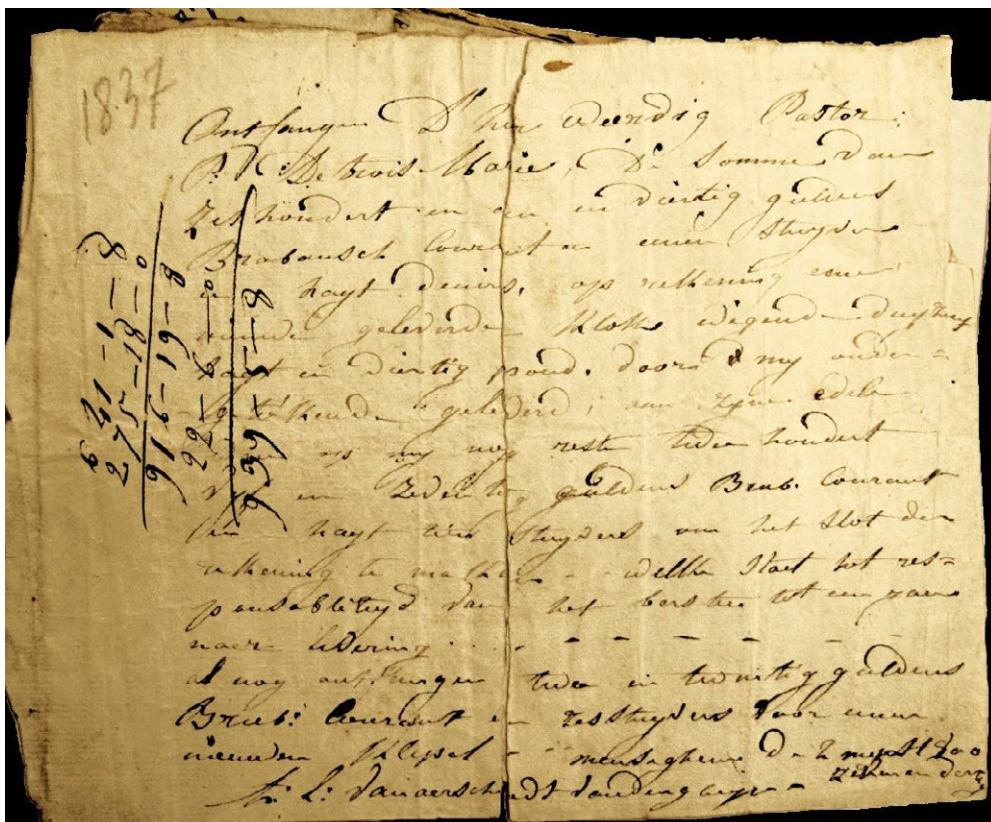 1837
Ontfangen D'heer weirdig Pastor:
De trois Marie, De Somme van
Zeshondert en een en viertig guldens
Brabansch Courant en eenen Stuyver
en hayt deniers, op rekening eene
nieuwe geleverde klokke wegende duyzend
hayt en viertig pond, door my onder=
getekende geleverd, aan zyne edele
op my nog reste twee hondert
vyf en Zeventig guldens Brab: Courant
hayt tien Stuyvers om het Slot der
rekening te maken - - welke Staet tot res=
ponsabiliteyd van het bersten tot een jaer
naer levering . . - - - - - -
al nog ontfangen twee en twintig guldens
Brab: Courant en zesstuyvers voor eenen
nieuwen klepel -
A: L: Vanaerschodt Vandengheyn -
641-1-8
275-18-0
916-19-8
22-6-0
939-5-8